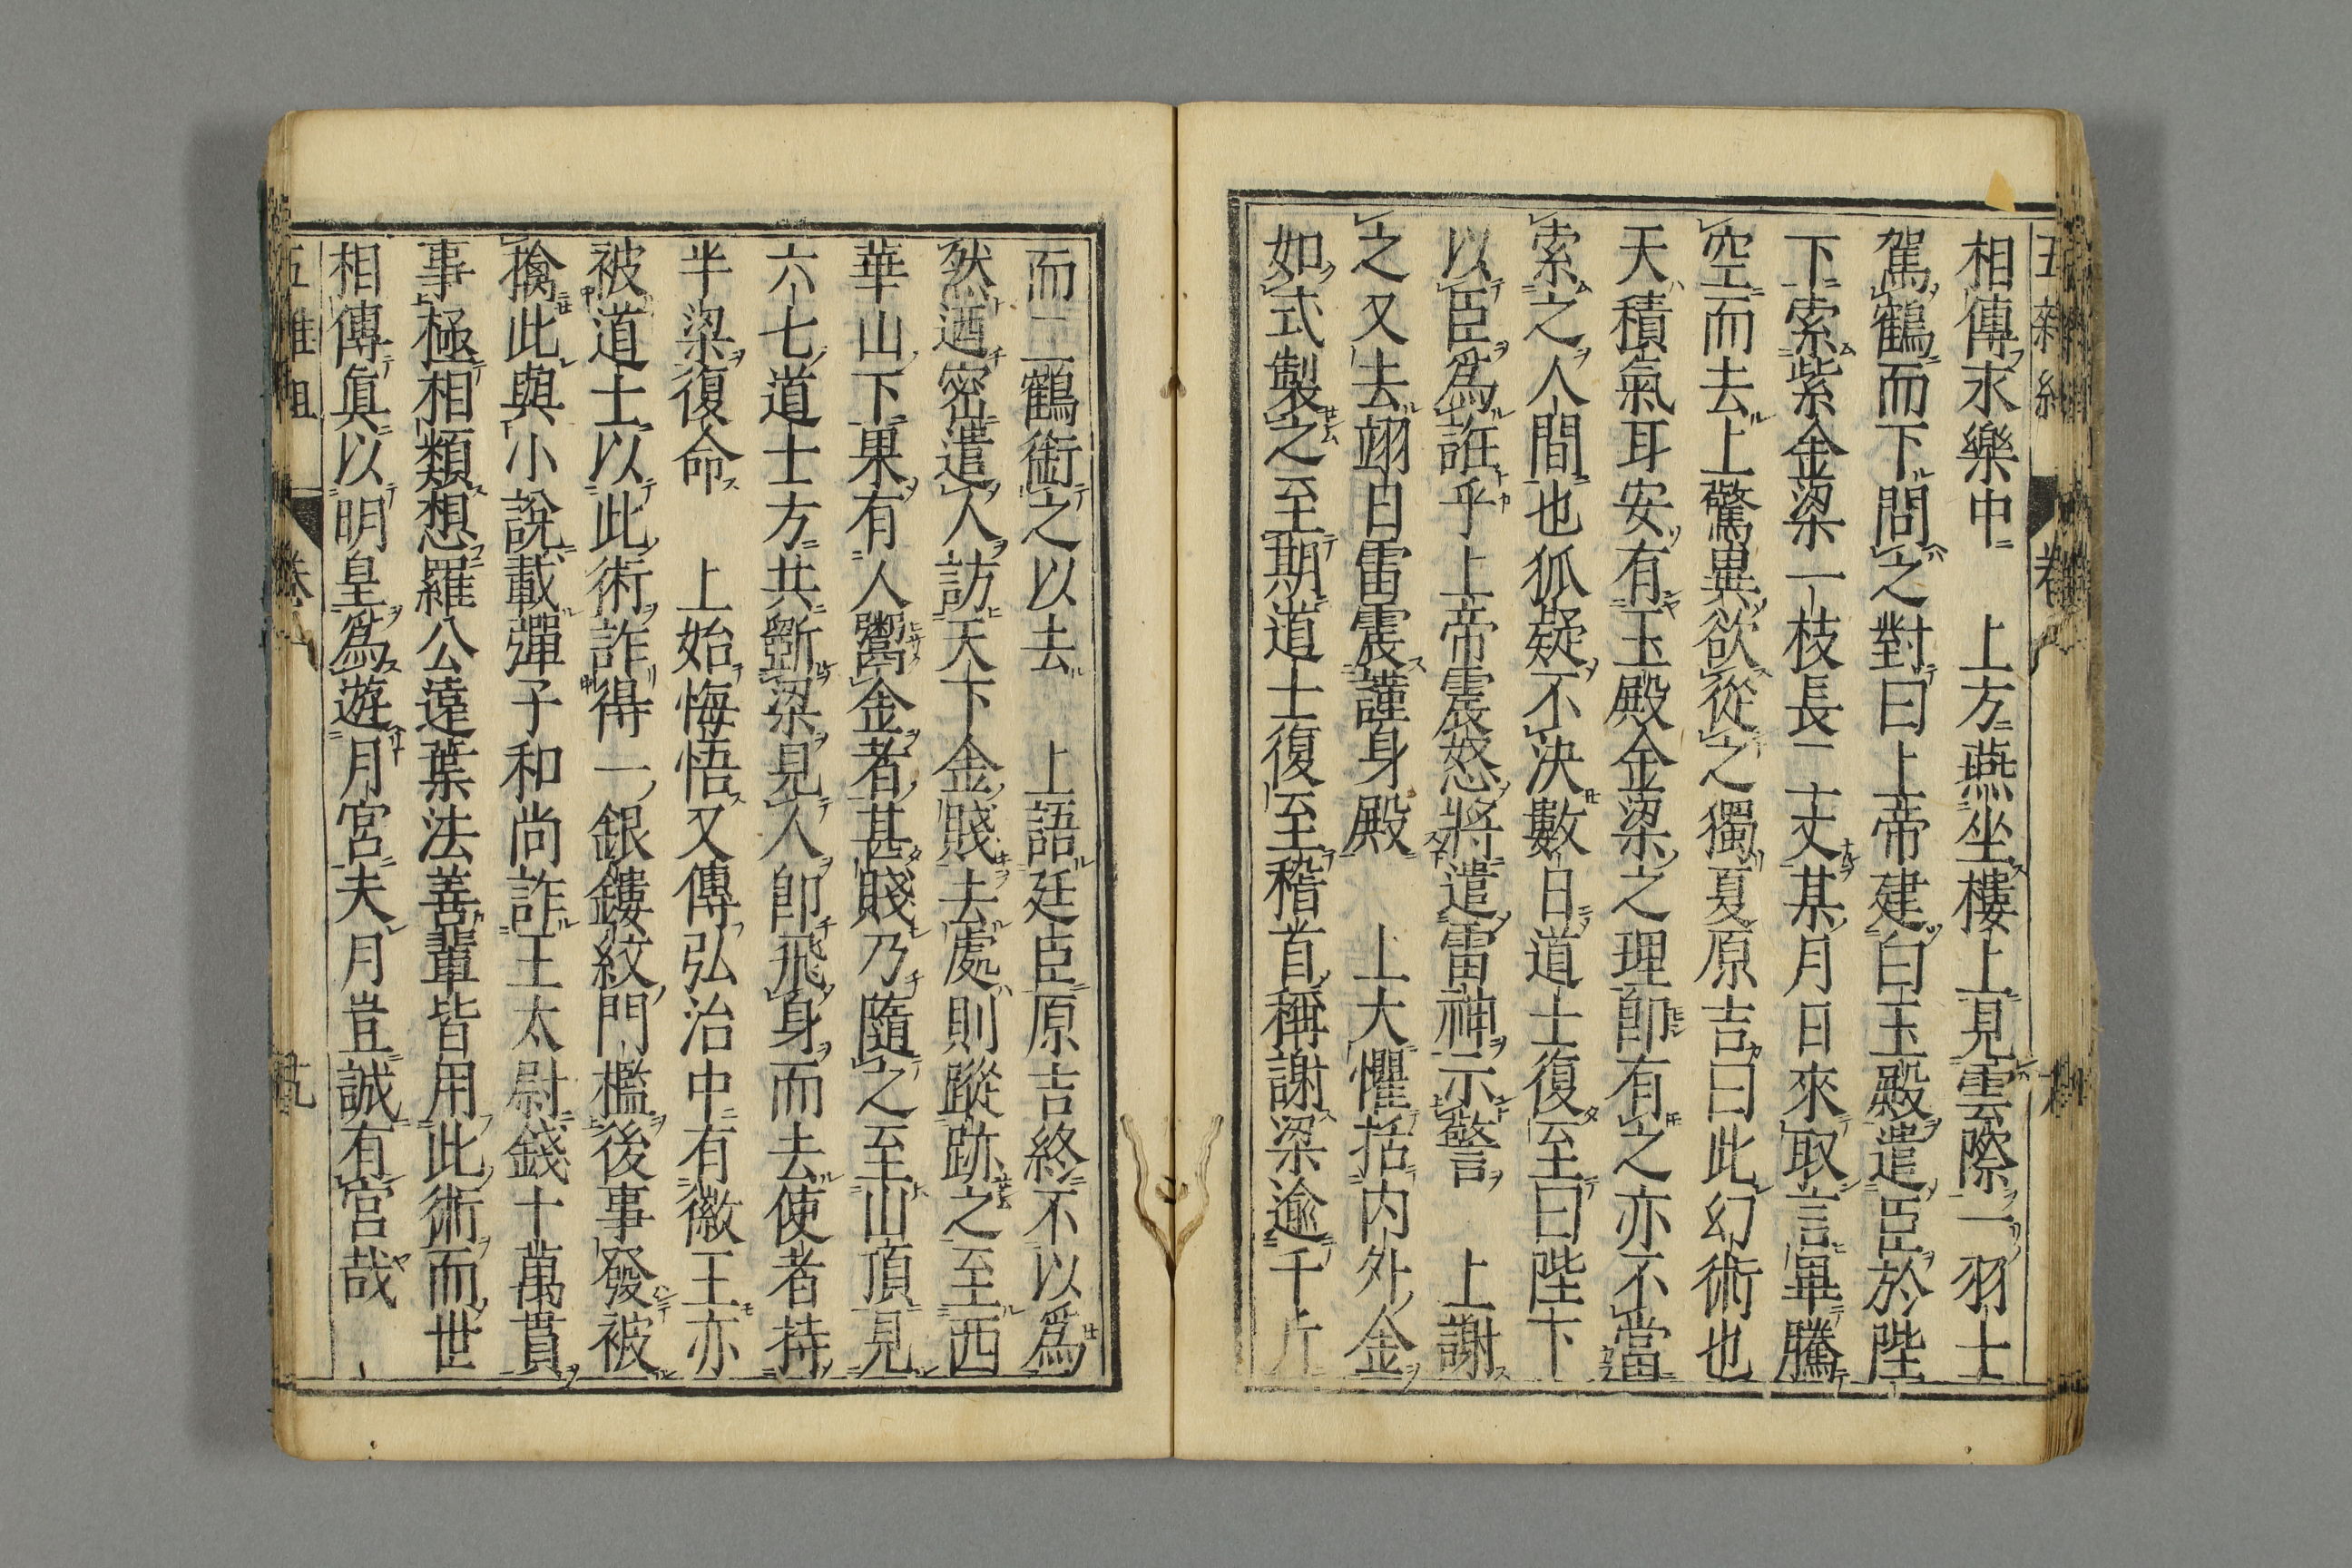 相傳永樂中 上方燕坐樓上見雲際一羽士
駕鶴而下問之對曰上帝建白玉殿遣臣於陛
下索紫金梁一枝長二丈某月日來取言畢騰
空而去上驚異欲從之獨夏原吉曰此幻術也
天積氣耳安有玉殿金梁之理卽有之亦不當
索之人間也狐疑不決數日道士復至曰陛下
以臣爲誑乎上帝震怒將遣雷神示警 上謝
之又去翊日雷震謹身殿 上大懼括内外金
如式製之至期道士復至稽首稱謝梁逾千斤
而二鶴銜之以去 上語廷臣原吉終不以爲
然迺密遣人訪天下金賤去處則蹤跡之至西
華山下果有人鬻金者甚賤乃隨之至山頂見
六七道士方共斲梁見人卽飛身而去使者持
半梁復命 上始悔悟又傳弘治中有徽王亦
被道士以此術詐得一銀鏤紋門檻後事發被
擒此與小說載彈子和尚詐王太尉錢十萬貫
事極相類想羅公遠葉法善輩皆用此術而世
相傳眞以明皇爲遊月宮夫月豈誠有宮哉